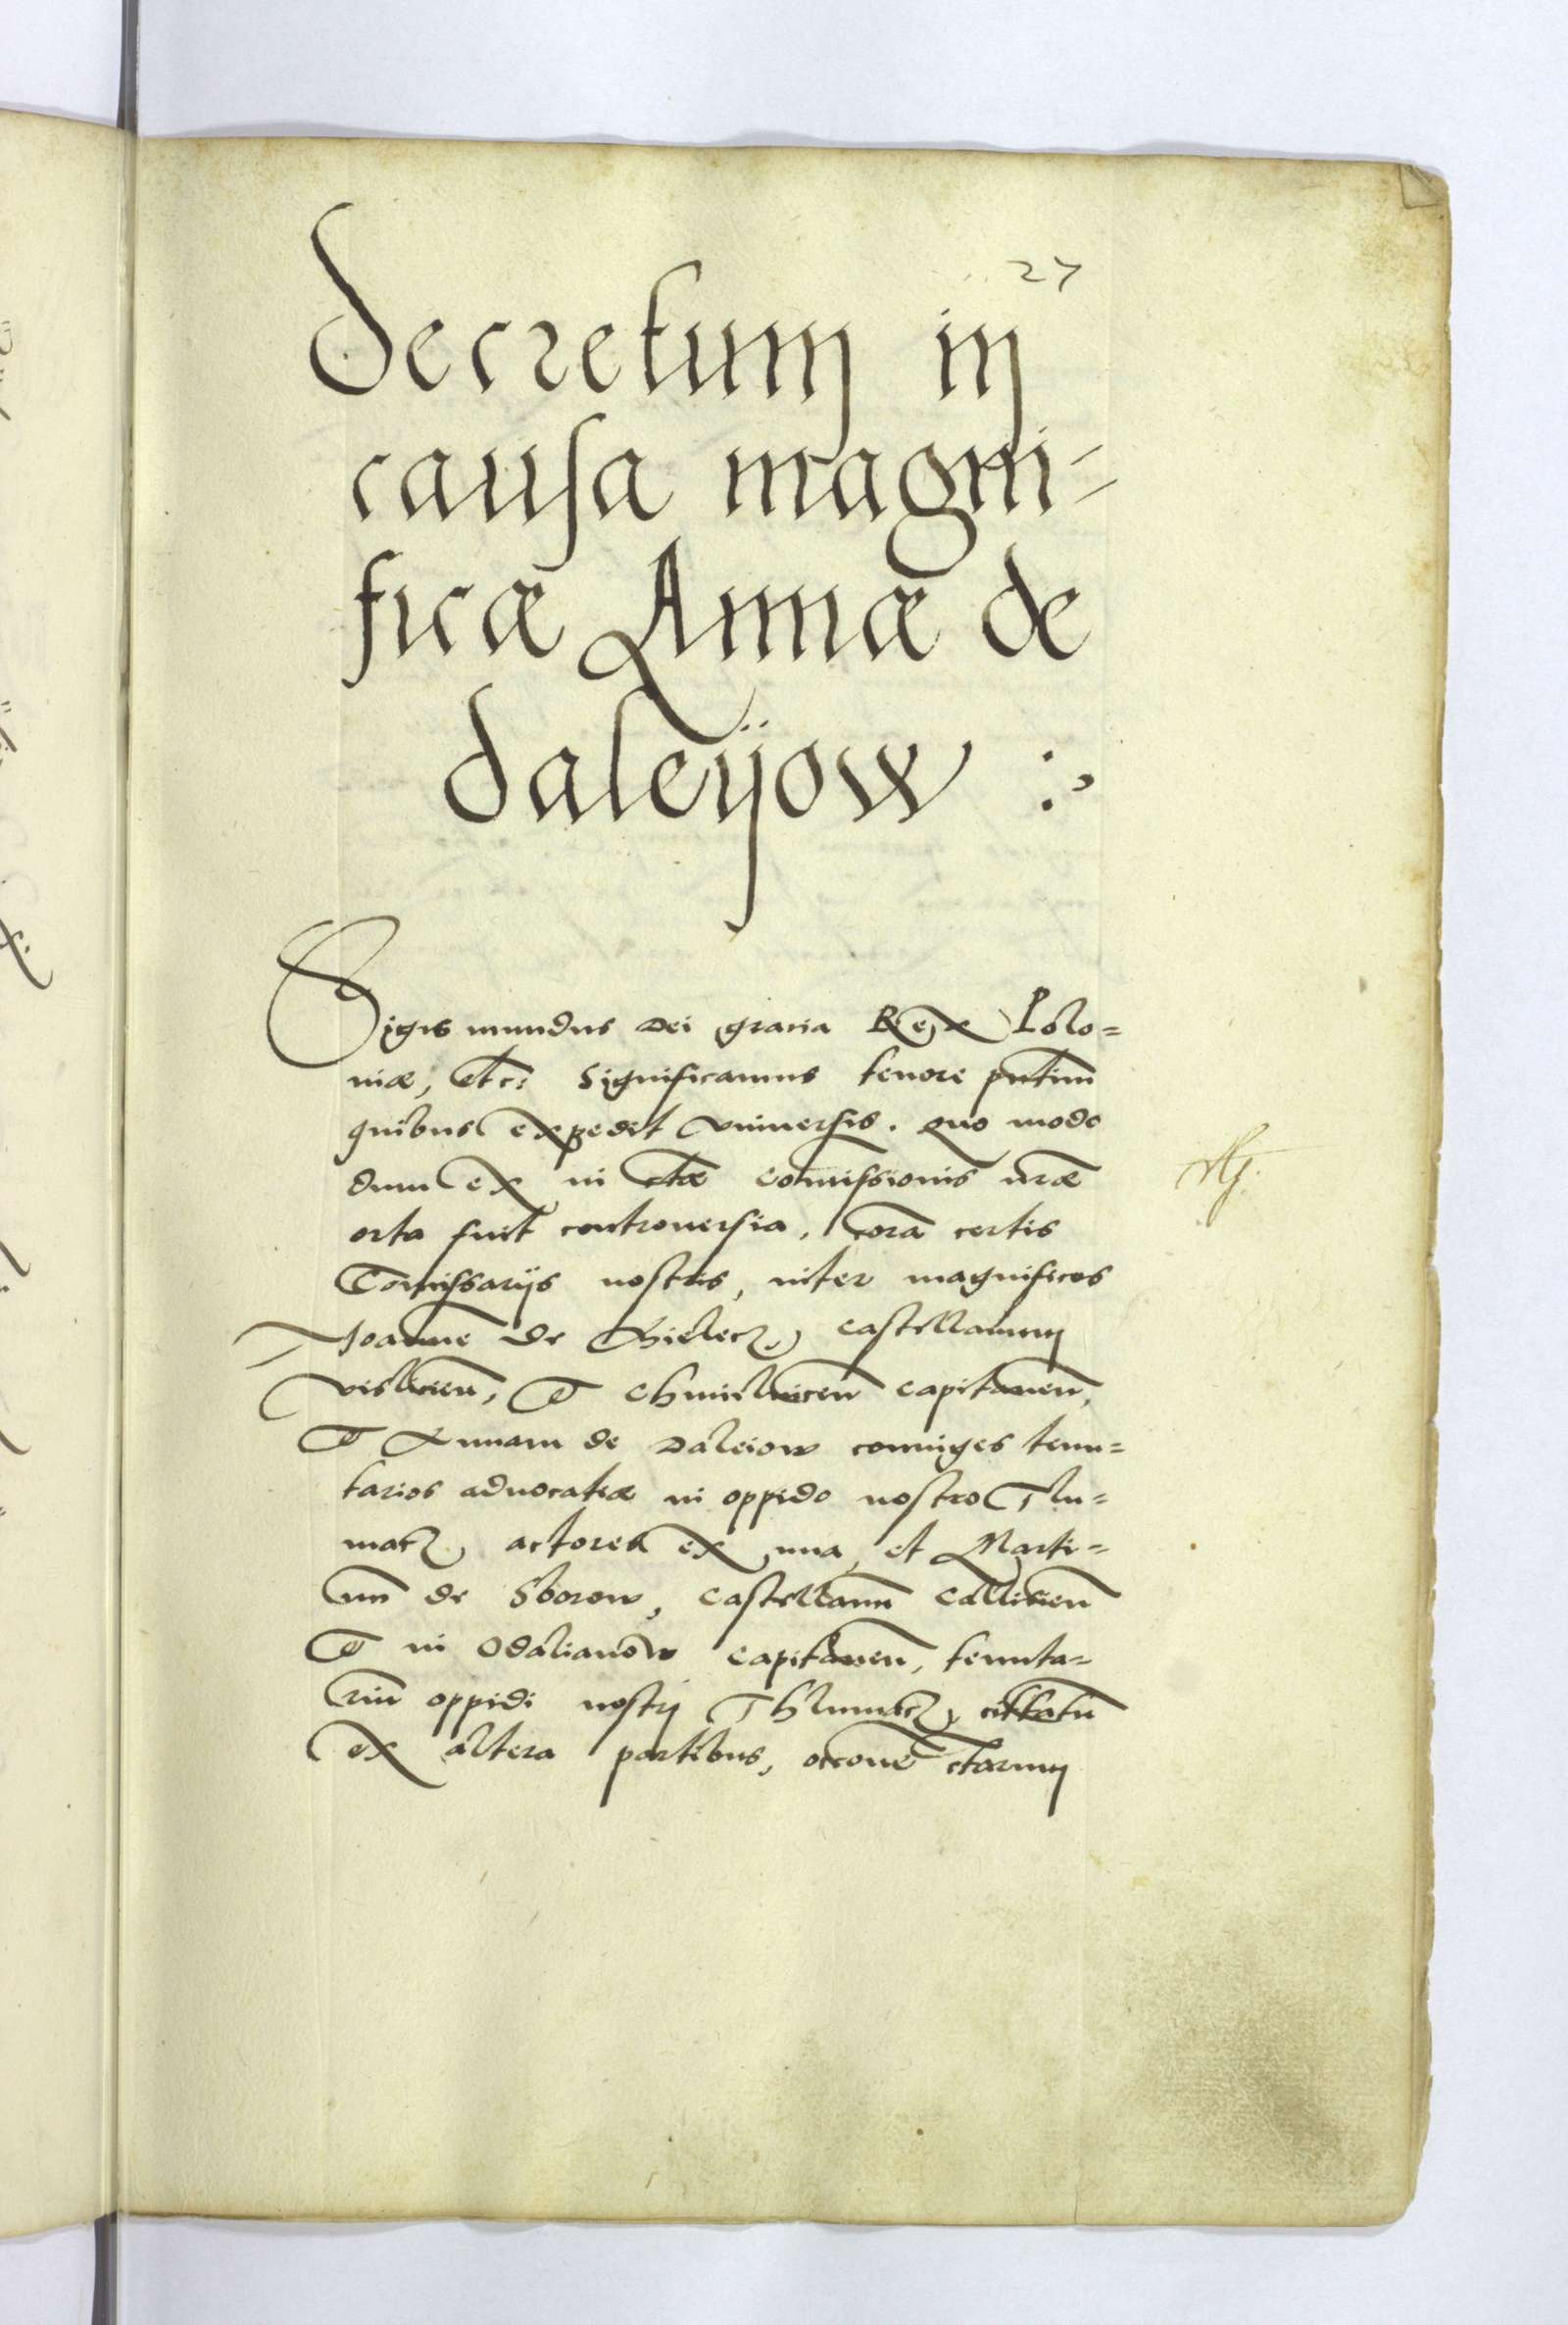 27
Decretum in
causa magni-
ficæ Annæ de
daleijow :
Sigismundus Dei gratia Rex Polo=
niæ, etc: Significamus tenore pntium̄
quibus expedit vniuersis. Quo modo
dum ex vi comissionis nr̄æ
orta fuit controuersia, corā certis
Comissarijs nostris, inter magnificos
Joannē de Bielecz, castellanum
vislicien̄, et Chmielnicen̄ capitaneū,
et Annam de Daleiow coniuges tenu=
tarios aduocatiæ in oppido nostro Tlu=
macz, actores ex una, et Marti=
nū de Sborow, Castellanū Callisien̄
et in Odalianow capitaneū, tenuta=
riū oppidi nostrj Thlumacz, cittatū
ex altera partibus, occone